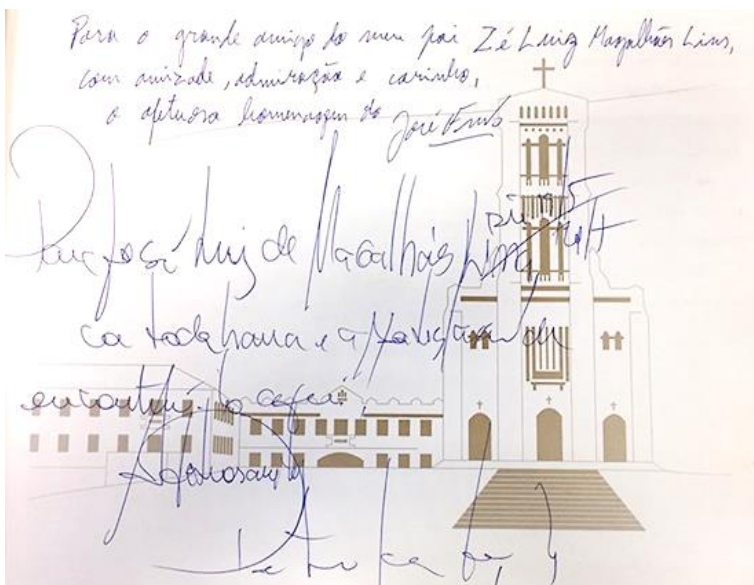 Para o grande amigo do meu pai Zé Luiz Magalhães Lins,
com amizade, admiração e carinho,
a afetuosa homenagem do José
Para José Luiz de Magalhães Lins,
Rio
toda honra e a
encontrá-lo aqui.
Afetuosamente